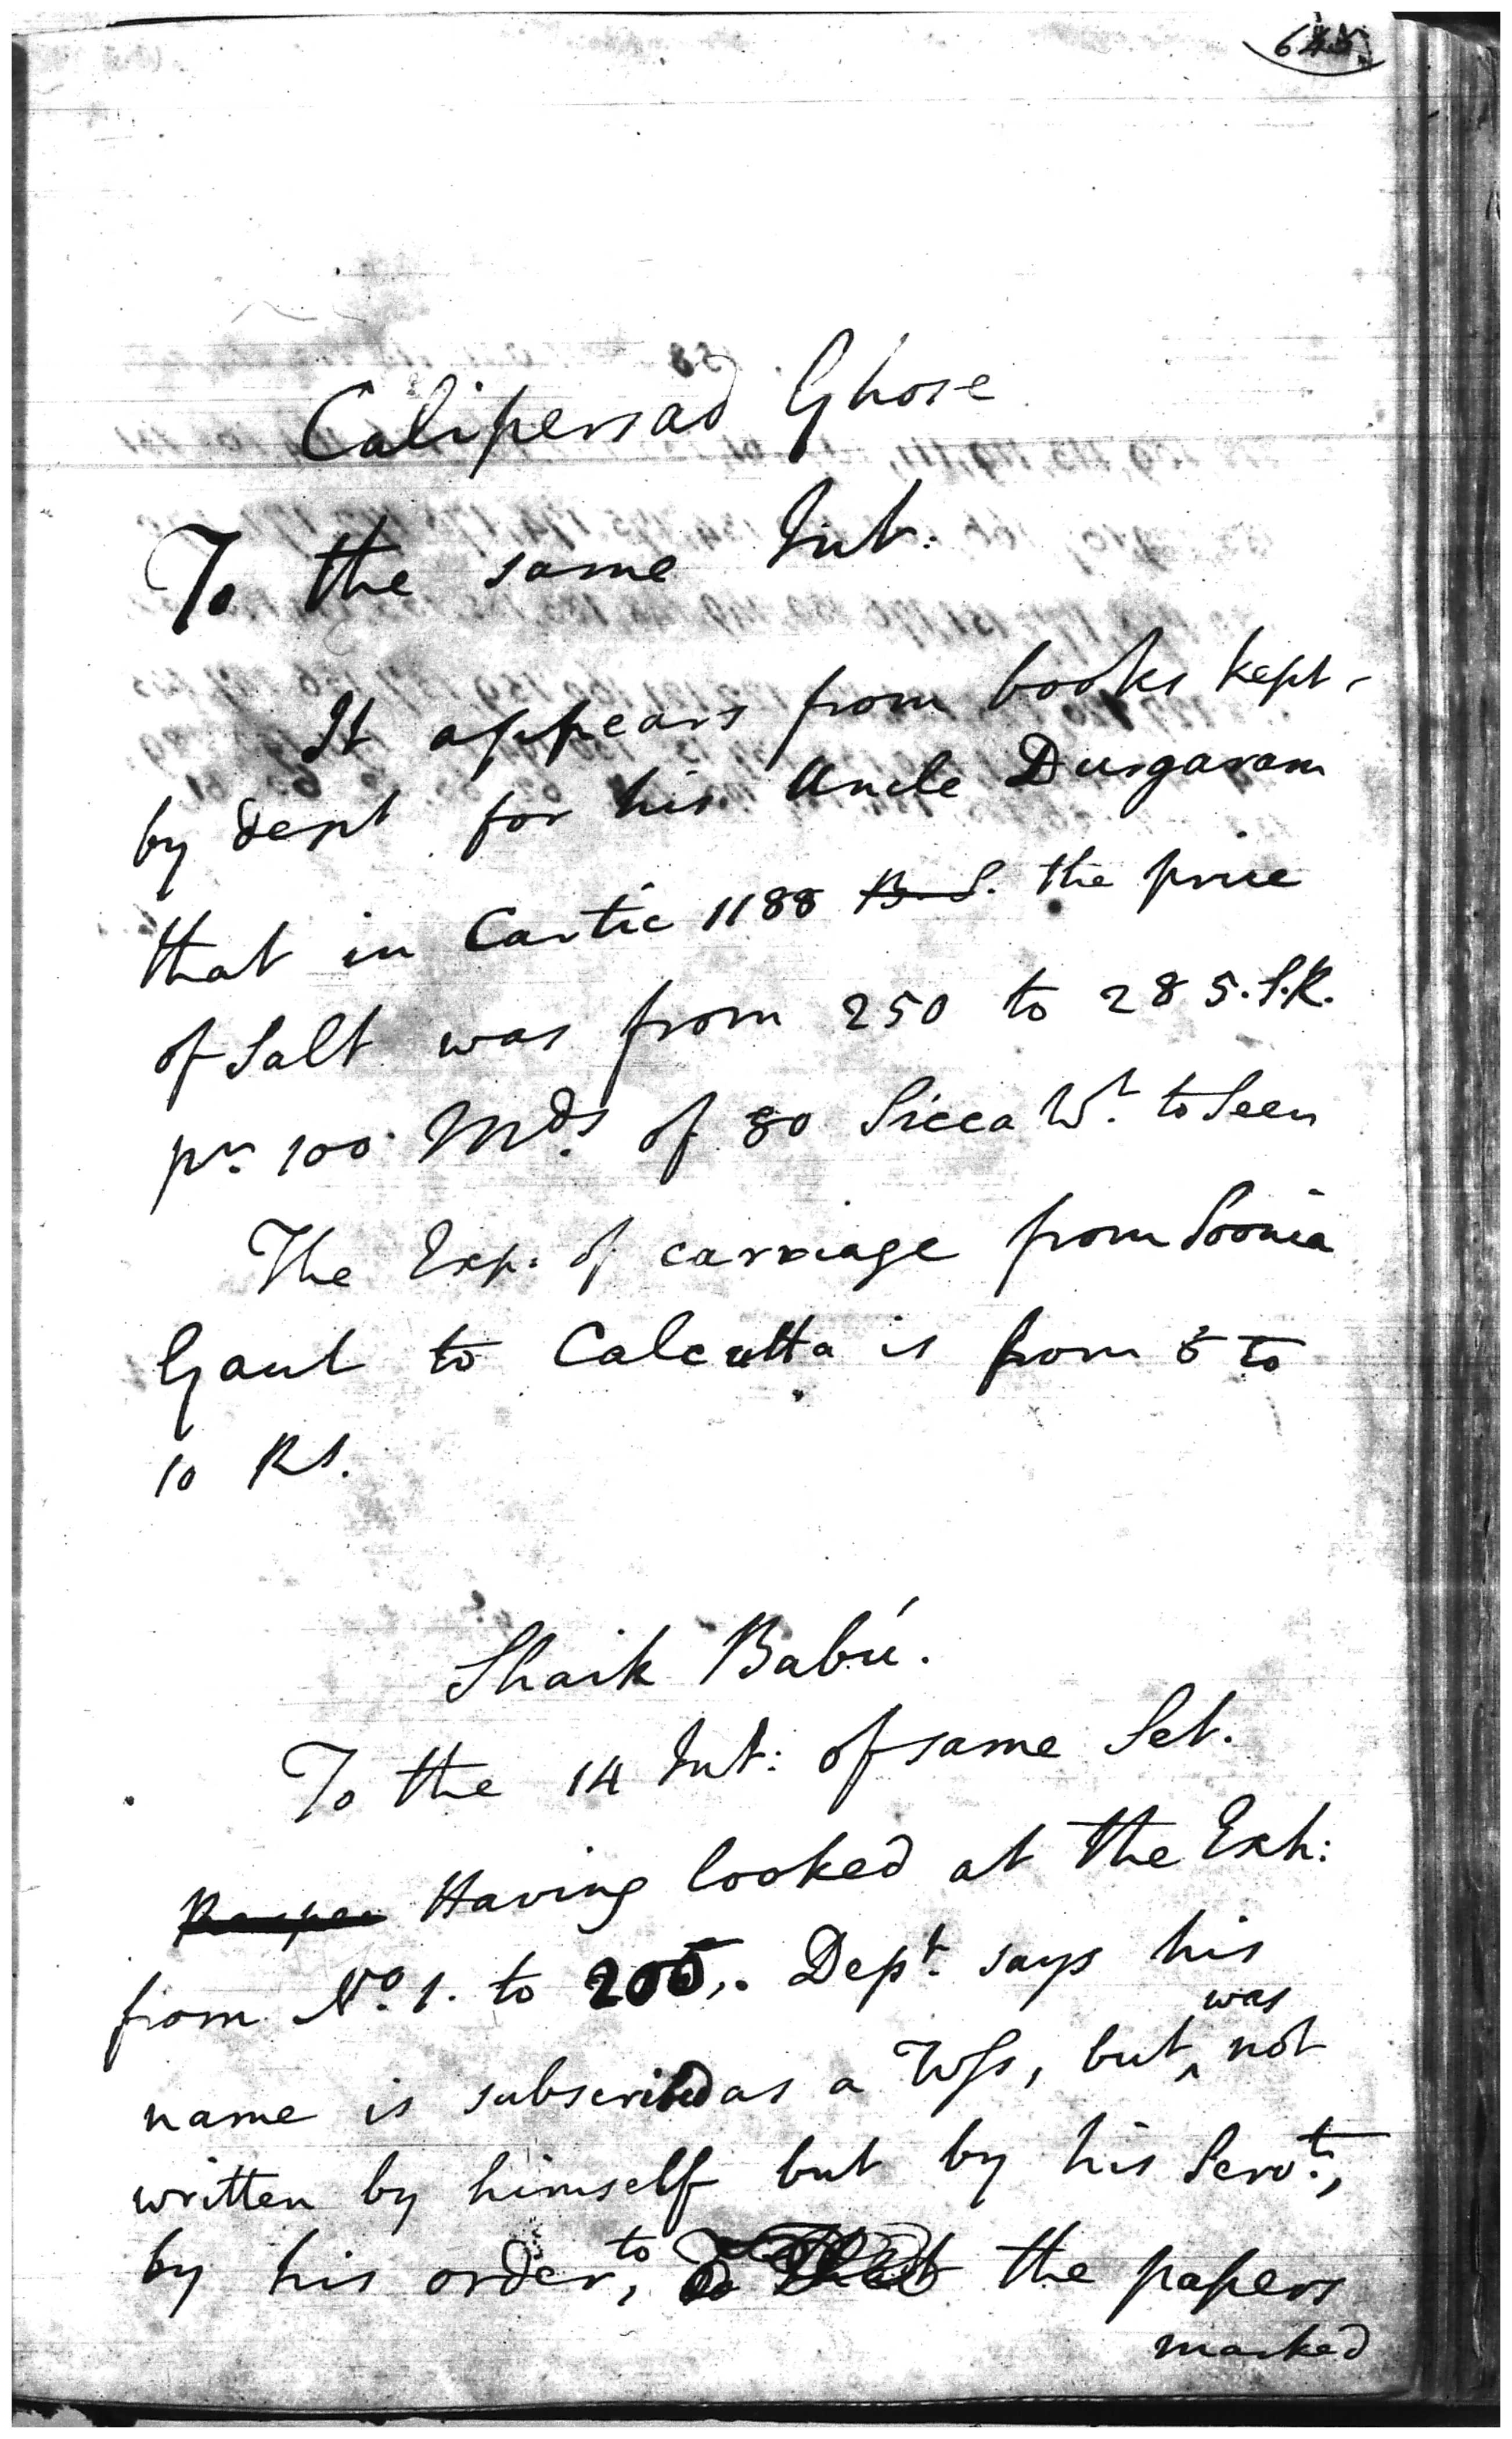 Calipersad Ghose
To the same Int:
It appears from books kept
by Dept for his Uncle Durgaram
that in Cartic 1188 B.S. the price
of Salt was from 250 to 285. S.R.
pr. 100 Mds. of 80 Sicca Wt. to Seer
The Exp: of carriage from Soonia
Gaut to Calcutta is from 5 to
10 Rs.
Shaik Babú.
To the 14 Int: of same Set.
Having looked at the Exh:
from No. 1. to 205,. Dept. says his
was
name is subscribed as a Wss, but ^ not
written by himself but by his Servt.,
by his order, to the papers
marked